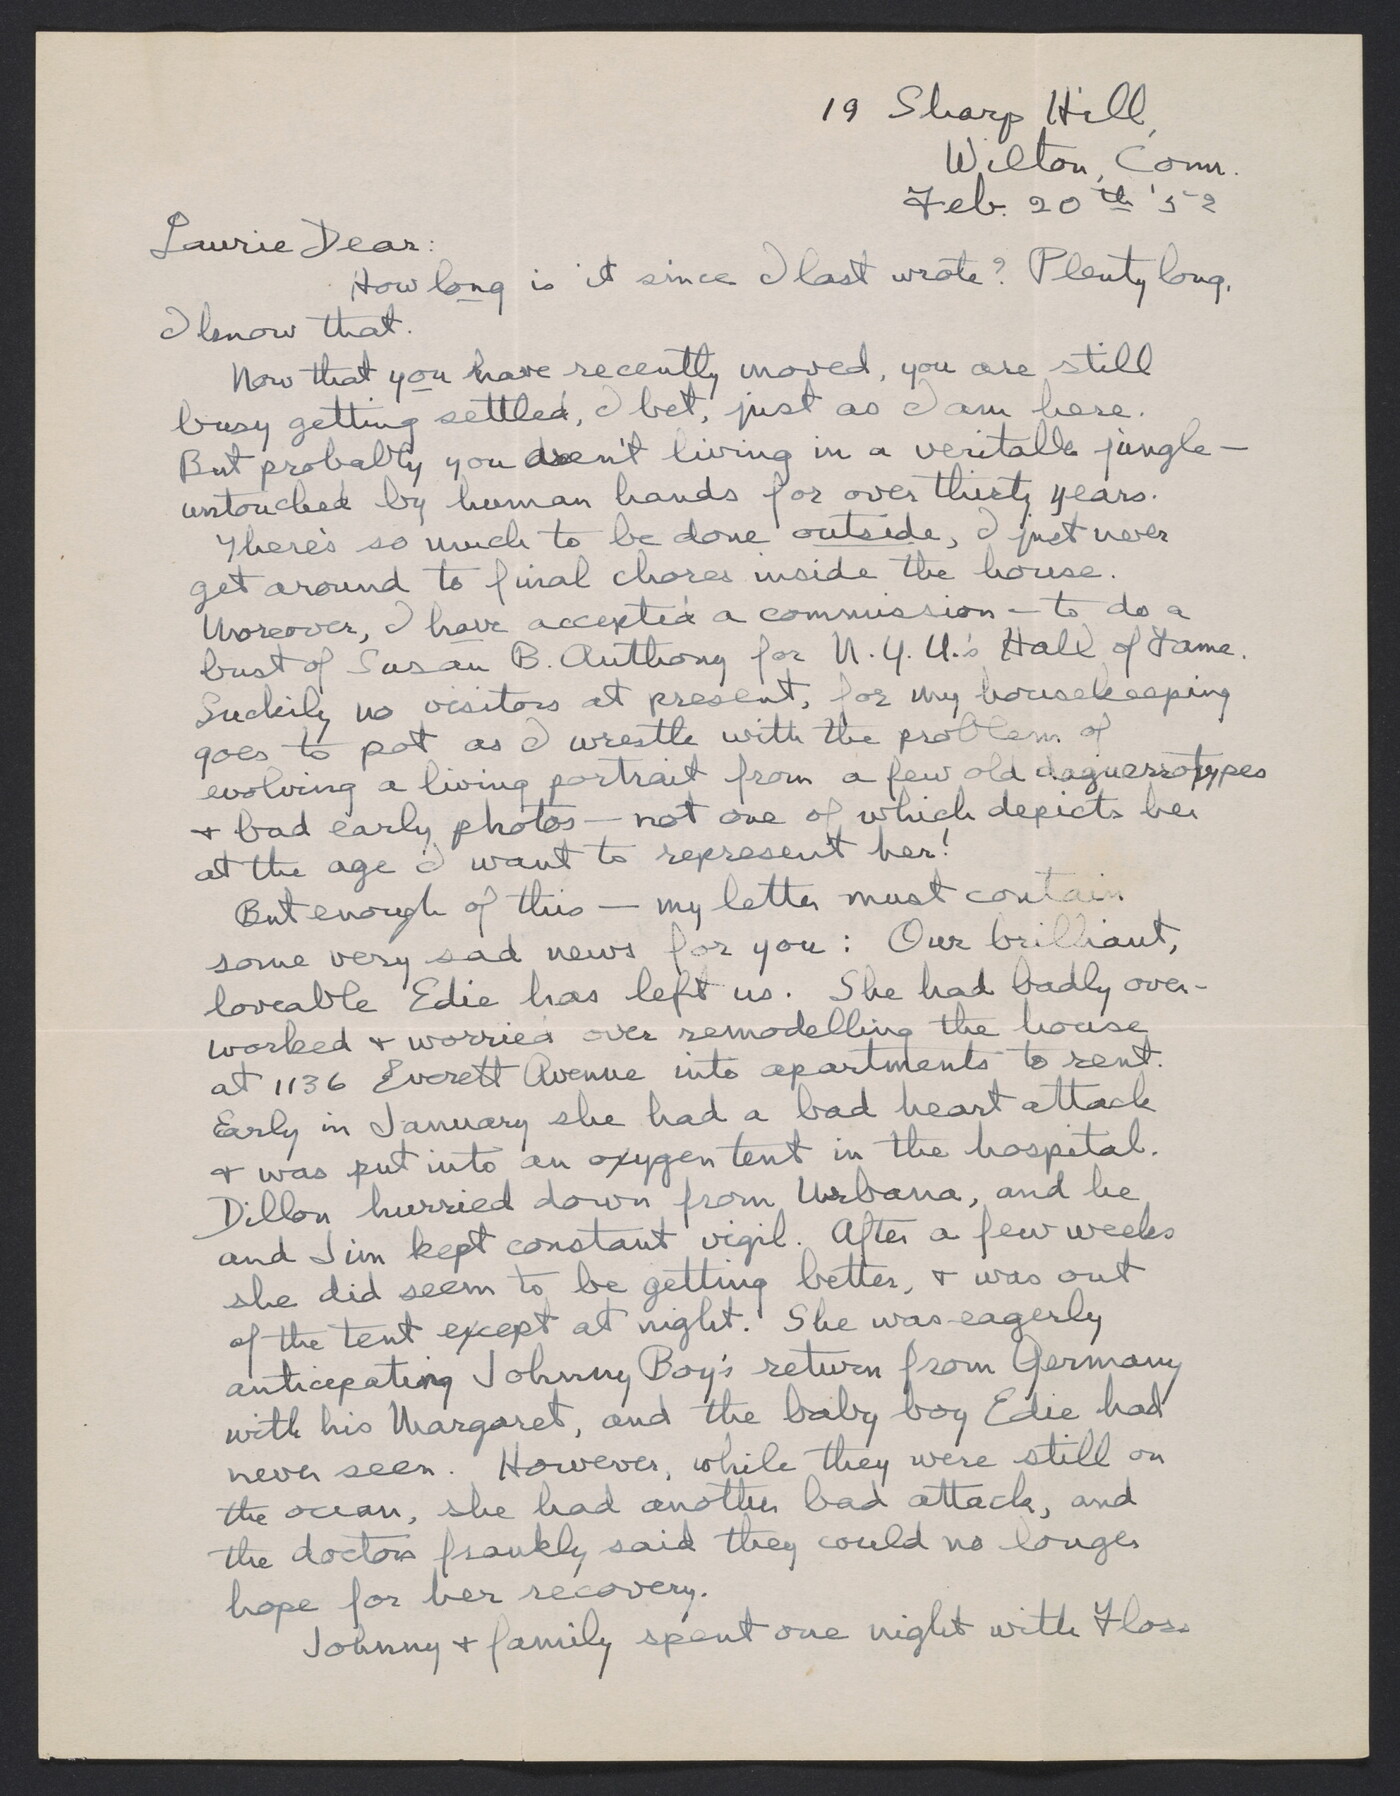 19 Sharp Hill,
Wilton, Conn.
Feb. 20th '52
Laurie Dear:
How long is it since I last wrote? Plenty long,
I know that.
Now that you have recently moved, you are still
busy getting settled, I bet, just as I am here.
But probably you aren't living in a veritable jungle —
untouched by human hands for over thirty years.
There's so much to be done outside, I just never
get around to final chores inside the house.
Moreover, I have accepted a commission — to do a
bust of Susan B. Anthony for N.Y.U.'s Hall of Fame.
Luckily no visitors at present, for my housekeeping
goes to pot as I wrestle with the problem of
evolving a living portrait from a few old daguerrotypes
+ bad early photos — not one of which depicts her
at the age I want to represent her!
But enough of this — my letter must contain
some very sad news for you: Our brilliant,
loveable Edie has left us. She had badly over-
worked + worried over remodelling the house
at 1136 Everett Avenue into apartments to rent.
Early in January she had a bad heart attack
+ was put into an oxygen tent in the hospital.
Dillon hurried down from Urbana, and he
and Jim kept constant vigil. After a few weeks
she did seem to be getting better, + was out
of the tent except at night. She was eagerly
anticipating Johnny Boy's return from Germany
with his Margaret, and the baby boy Edie had
never seen. However, while they were still on
the ocean, she had another bad attack, and
the doctors frankly said they could no longer
hope for her recovery.
Johnny + family spent one night with Floss